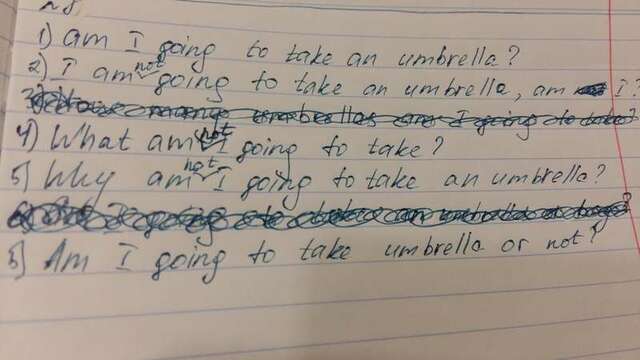 N8.
1) am I going to take an umbrella?
2) I am not going to take an umbrella, am I?
3) How many umbrellas am I going to take?
4) What am not I going to take?
5) Why am not I going to take an umbrella?
5) Am I going to take umbrella or not?